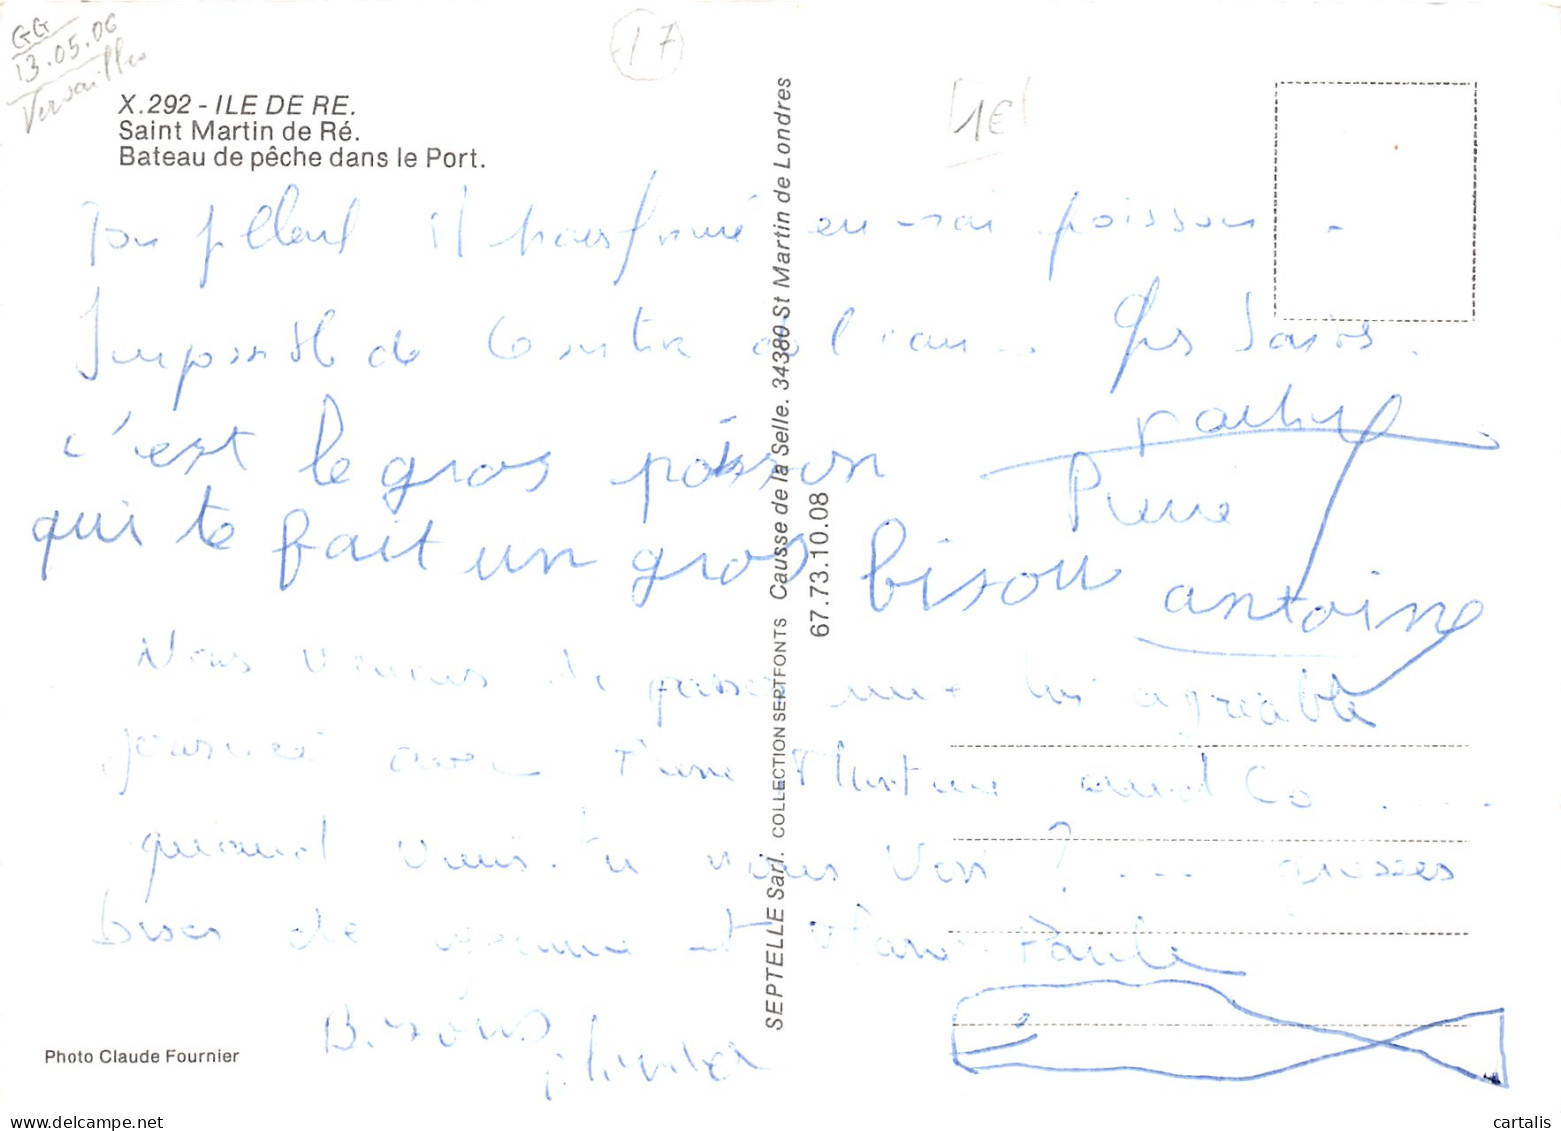 GG
13.05.06
Versailles
17
1€
X.292 - ILE DE RE.
Saint Martin de Ré.
Bateau de pêche dans le Port.
Ton il transformé en vrai poisson.
Impossible de sortir de l'eau... Gros
c'est le gros poisson
Pierre
qui te fait un gros bisou antoine
Nous venons de passer une très agréable
journée avec and Co ....
quand viens-tu nous voir ? .... grosses
bises de et Marie-Paule
Bisous
SEPTELLE Sarl. COLLECTION SEPTFONTS Causse de la Selle. 34380 St Martin de Londres
67.73.10.08
Photo Claude Fournier
www.cartalis.com